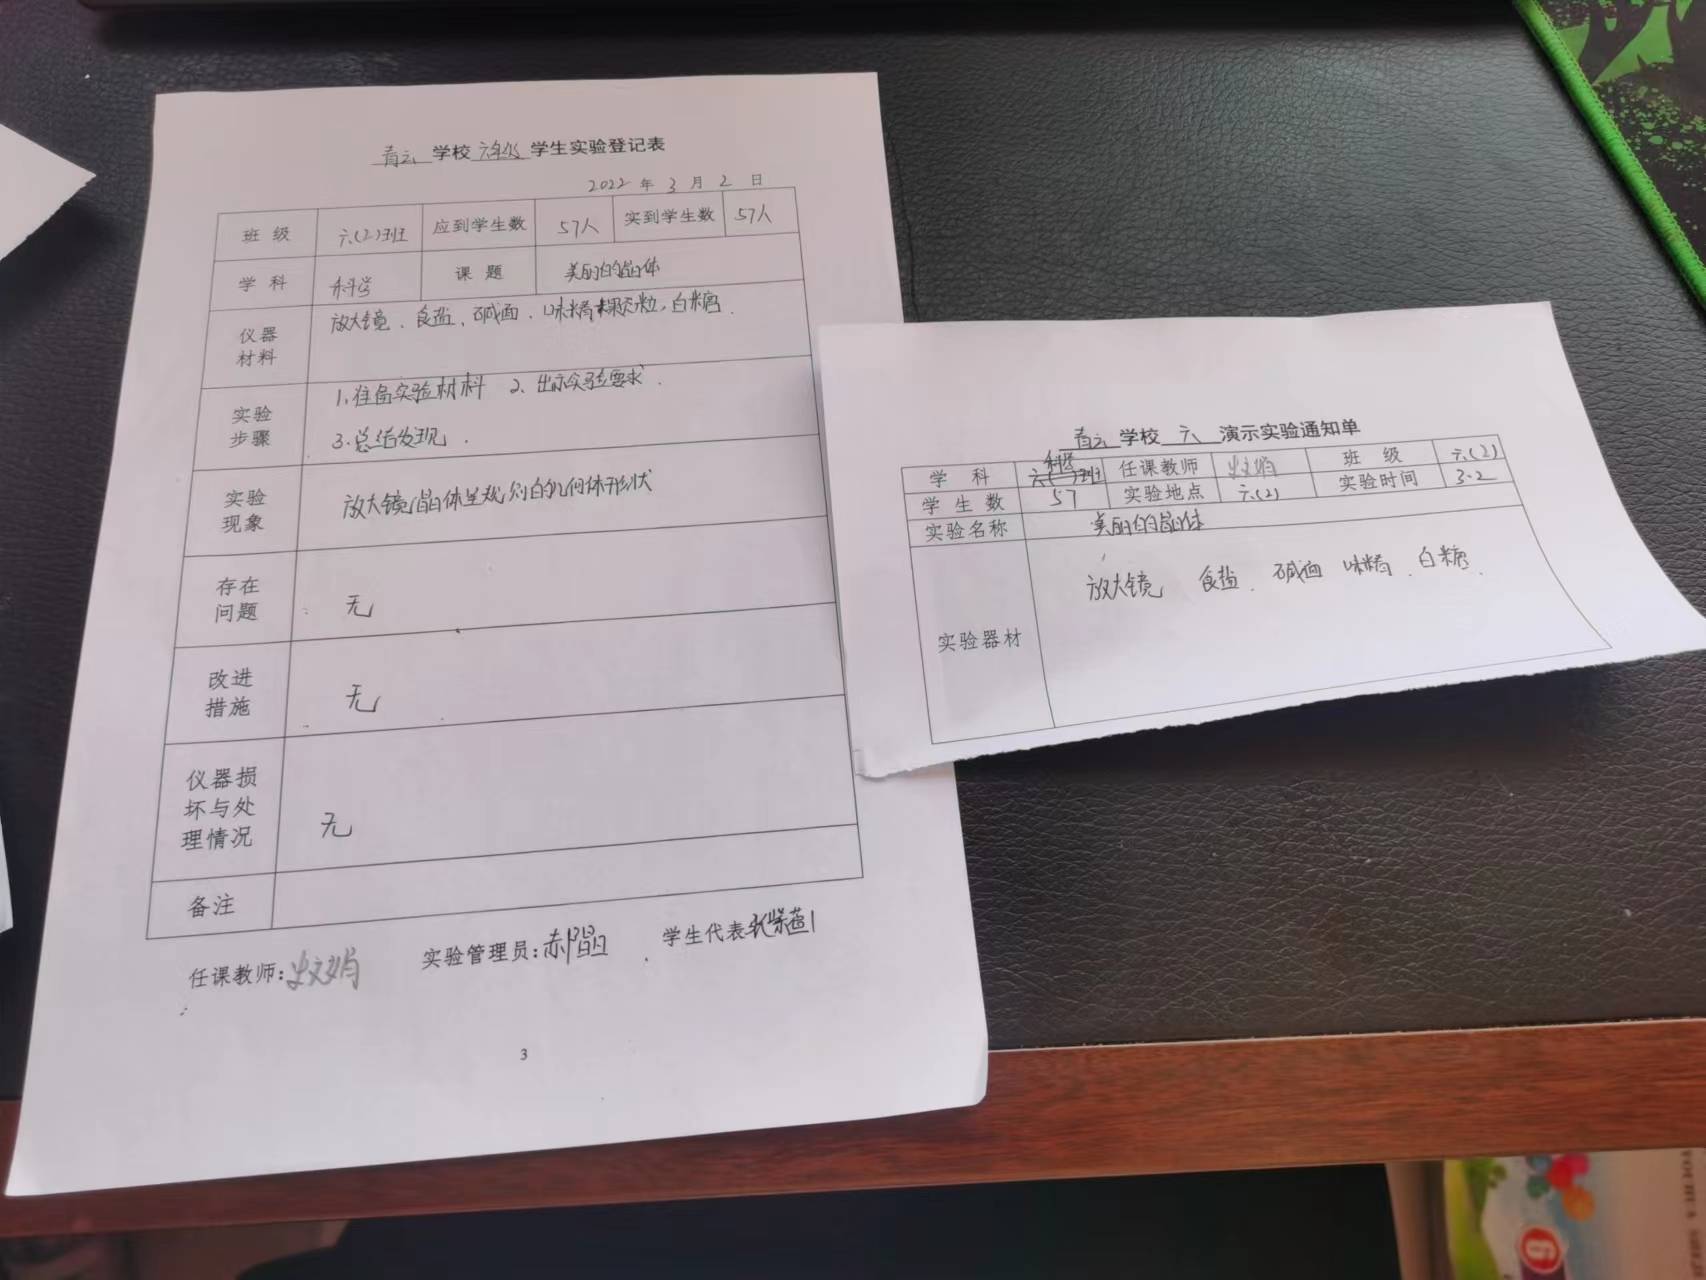 青云 学校 六年级 学生实验登记表
2022 年 3 月 2 日
班 级 六(2)班 应到学生数 57人 实到学生数 57人
学 科 科学 课 题 美丽的晶体
仪器材料 放大镜、食盐、碱面、味精颗粒,白糖.
实验步骤 1.准备实验材料 2、出示实验要求.
3.总结发现.
实验现象 放大镜晶体呈规则的几何体形状
存在问题 无
改进措施 无
仪器损坏与处理情况 无
备注
任课教师: 实验管理员:郝晶 学生代表
3
青云 学校 六 演示实验通知单
学 科 科学 任课教师 班 级 六(2)
学 生 数 57 实验地点 六(2) 实验时间 3.2
实验名称 美丽的晶体
实验器材 放大镜 食盐、碱面 味精、白糖.
6